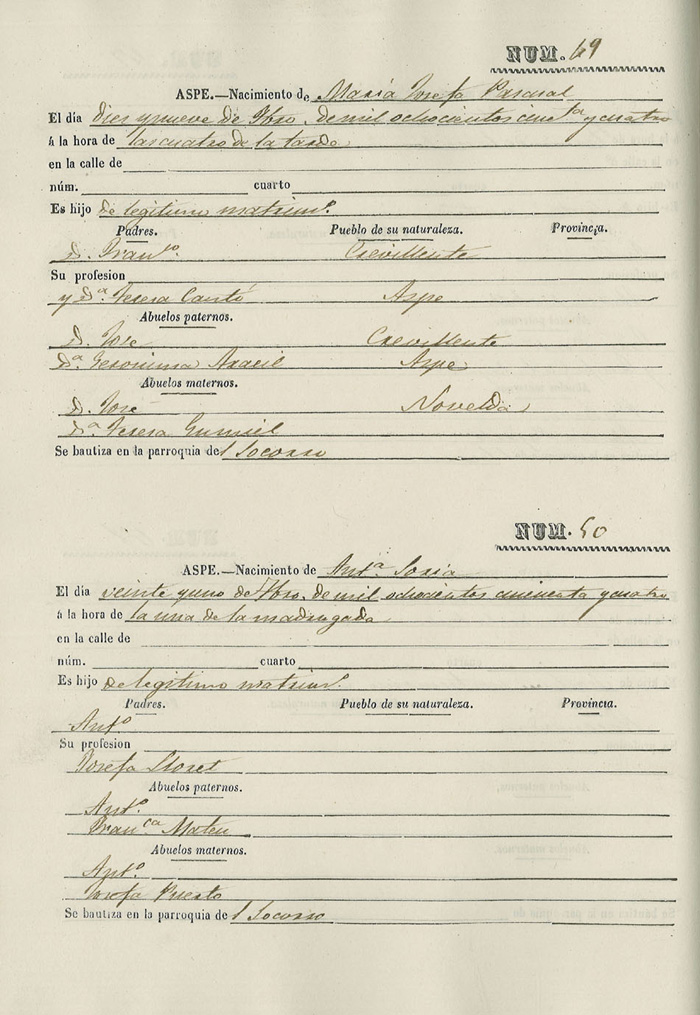 NUM. 49
ASPE.—Nacimiento de María Josefa Pascual
El día diez y nueve de 7bro. de mil ochocientos cincta y cuatro
á la hora de las cuatro de la tarde
en la calle de
núm. cuarto
Es hijo de legitimo matrimo.
Padres. Pueblo de su naturaleza. Provincia.
D. Franco. Crevillente
Su profesion
y Da. Teresa Cantó Aspe
Abuelos paternos.
D. José Crevillente
Da. Geronima Aracil Aspe
Abuelos maternos.
D. José Novelda
Da. Teresa Gumiel
Se bautiza en la parroquia del Socorro
NUM. 50
ASPE.—Nacimiento de Anta. Soria
El día veinte y uno de 7bro. de mil ochocientos cincuenta y cuatro
á la hora de la una de la madrugada
en la calle de
núm. cuarto
Es hijo de legitimo matrimo.
Padres. Pueblo de su naturaleza. Provincia.
Anto.
Su profesion
Josefa Lloret
Abuelos paternos.
Anto.
Franca Mateu
Abuelos maternos.
Anto.
Josefa Puerto
Se bautiza en la parroquia del Socorro